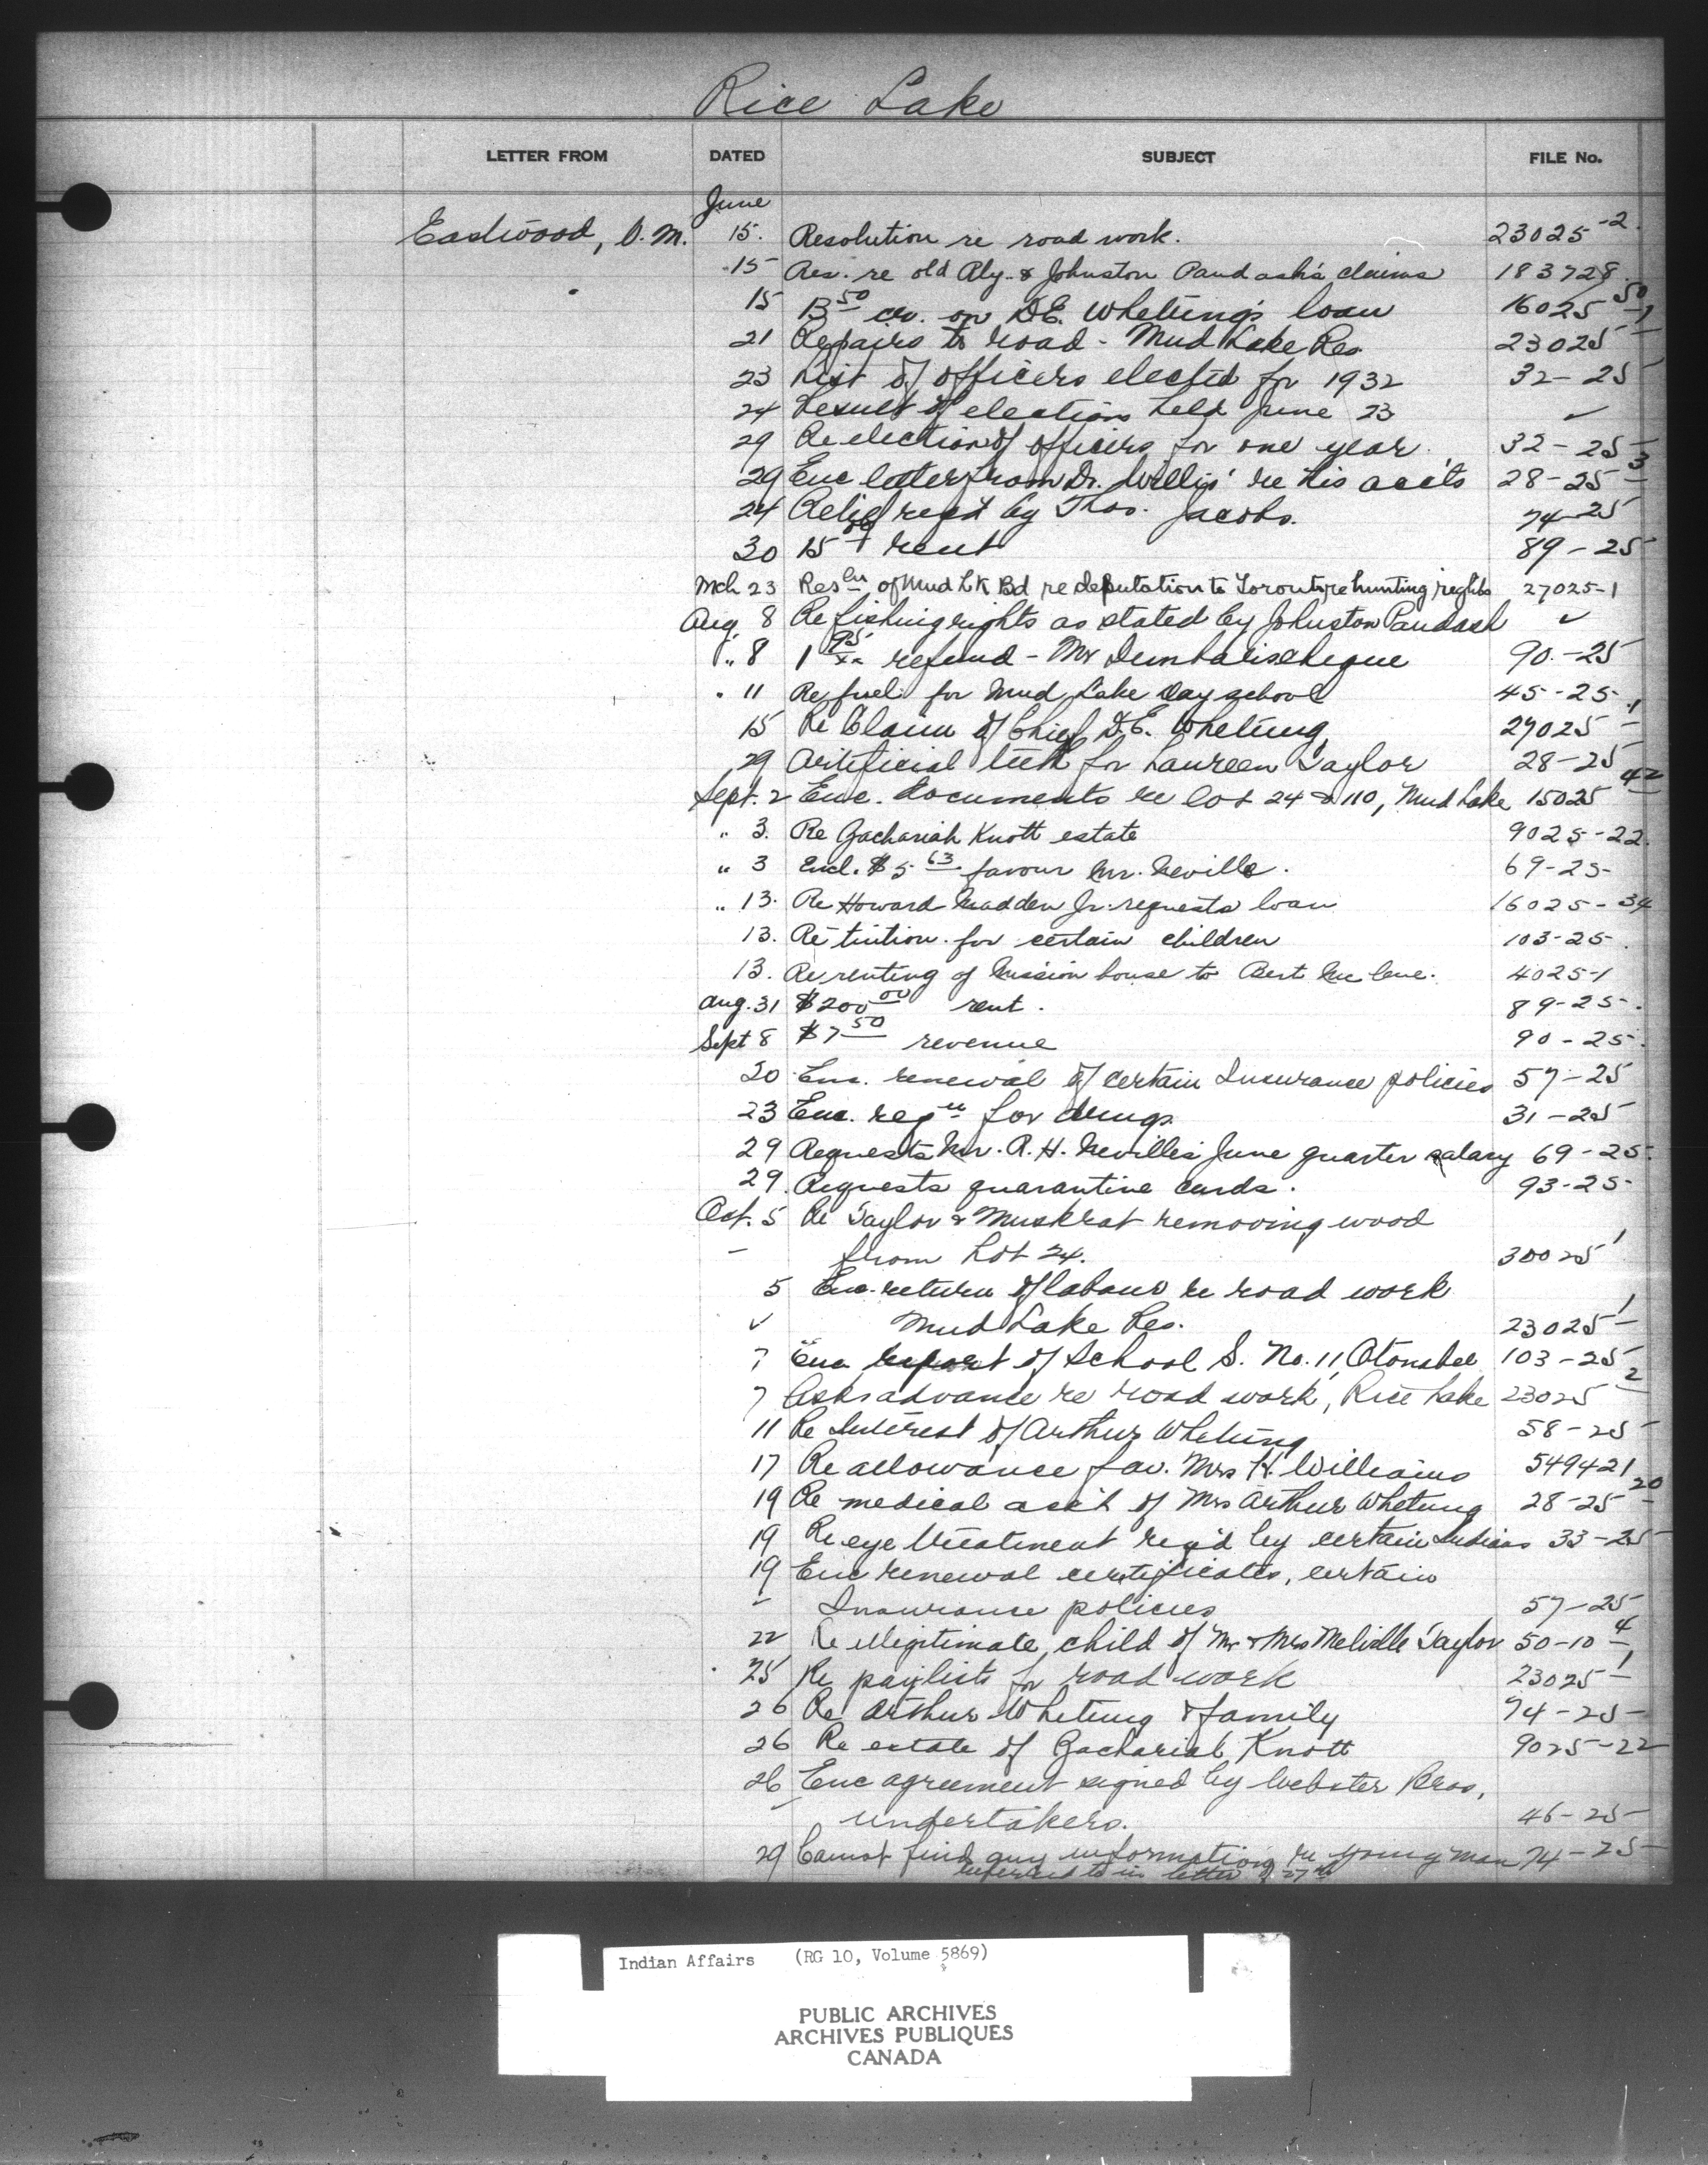 Rice Lake
LETTER FROM DATED SUBJECT FILE No.
June
Eastwood, V. M. 15. Resolution re road work. 23025-2.
15 Res. re old Aly. & Johnston Paudash's claims 183728
15 13 50 cr. on D.E. Whetung's loan 16025 50
21 Repairs to road - Mud Lake Res. 23025 -1
23 List of officers elected for 1932 32-25
24 Result of election held June 23 ✓
29 Re election of officers for one year. 32-25
29 Enc letter from Dr. Willis' re his acc'ts 28-25 3
24 Relief req'd by Thos. Jacobs. 74-25
30 15 rent 89-25
Mch 23 Resln of Mud Lk Bd re deputation to Toronto re hunting rights 27025-1
Aug 8 Re fishing rights as stated by Johnston Paudash ✓
" 8 1 95 refund - Mr 90.-25
" 11 Re fuel for Mud Lake Day school 45-25-
15 Re Claim of Chief D.E. Whetung, 27025 -1
29 Artificial teeth for Laureen Taylor 28-25
Sept. 2 Enc. documents re lot 24 & 110, Mud Lake 15025 42
" 3. Re Zachariah Knott estate 9025-22.
" 3 Encl. $5 63 favour Mr. Neville. 69-25-
" 13. Re Howard Madden Jr. requests loan 16025-34
13. Re tuition for certain children 103-25-.
13. Re renting of Mission house to Bert McCue. 4025-1
Aug. 31 $200 00 rent. 89-25-.
Sept 8 $7 50 revenue 90-25-.
20 Enc. renewal of certain Insurance policies 57-25
23 Enc. reqn for drugs. 31-25
29 Requests Mr. R. H. Neville's June quarter salary 69-25-.
29. Requests quarantine cards. 93-25-
Oct. 5 Re Taylor & Muskrat removing wood
- from Lot 24. 30025 1
5 Enc. return of labour re road work
✓ Mud Lake Res. 23025 1
7 Enc report of School S. No. 11, Otonabee 103-25
7 Asks advance re road work, Rice Lake 23025 2
11 Re Interest of Arthur Whetung 58-25
17 Re allowance fav. Mrs H. Williams 549421
19 Re medical acc't of Mrs Arthur Whetung 28-25 20
19 Re eye treatment req'd by certain Indians 33-25
19 Enc renewal certificates, certain
- Insurance policies 57-25
22 Re illegitimate child of Mr & Mrs Melville Taylor 50-10 4
25 Re paylists for road work 23025 1
26 Re Arthur Whetung & family 74-25-
26 Re estate of Zachariah Knott 9025-22
26 Enc agreement signed by Webster Bros,
- undertakers. 46-25-
29 Cannot find any information re young man 74-25-
referred to in letter of 27th
Indian Affairs (RG 10, Volume 5869)
PUBLIC ARCHIVES
ARCHIVES PUBLIQUES
CANADA